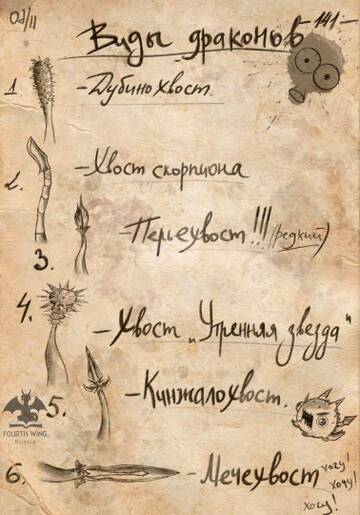 Виды драконов
-141-
1. -Дубинохвост.
2. -Хвост скорпиона
3. -Перьехвост!!! (редкий)
4. -Хвост „Утренняя звезда“
5. -Кинжалохвост.
FOURTH WING
Russia
6. -Мечехвост хочу!
хочу!
хочу!